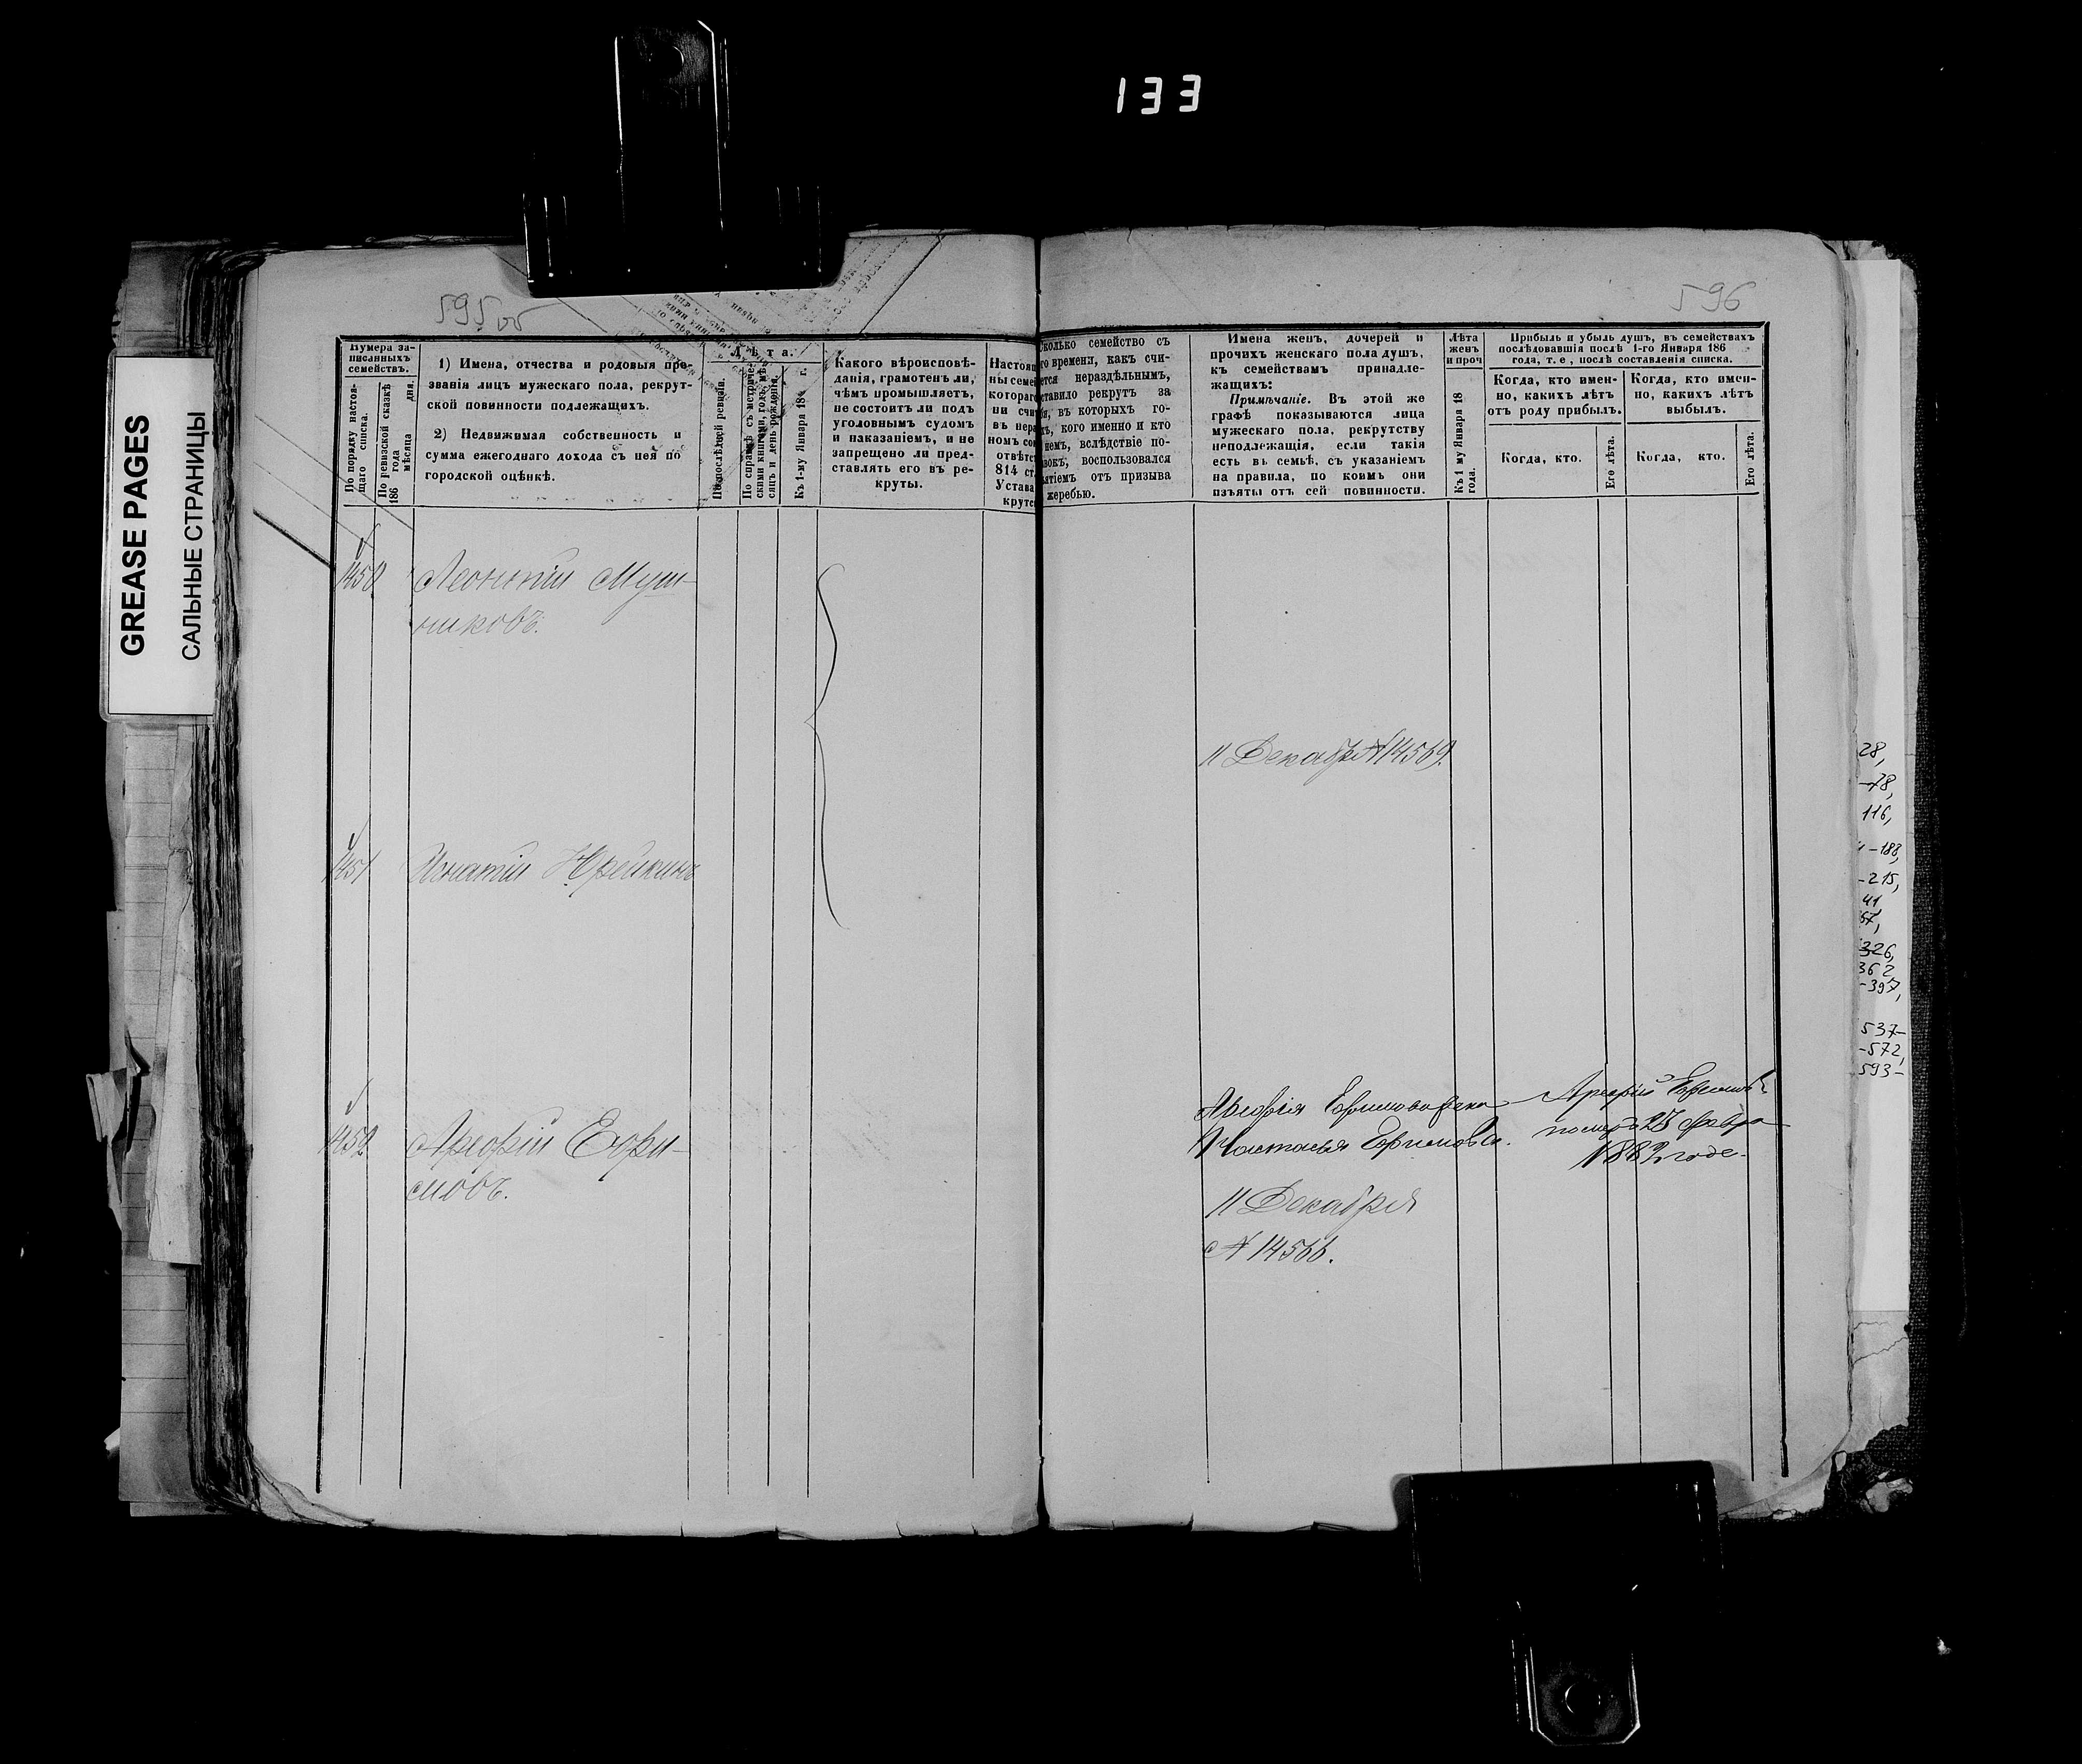 133
GREASE PAGES
САЛЬНЫЕ СТРАНИЦЫ
595 об
596
Нумера за-
писанныхъ
семействъ.
По порядку настоя-
щаго списка.
По ревизской сказкѣ
186 года дня.
мѣсяца
1) Имена, отчества и родовыя про-
званія лицъ мужескаго пола, рекрут-
ской повинности подлежащихъ.
2) Недвижимая собственность и
сумма ежегоднаго дохода съ нея по
городской оцѣнкѣ.
Лѣта.
По послѣдней ревизіи.
По справкѣ съ метриче-
скими книгами, годъ, мѣ-
сяцъ и день рожденія.
Къ 1-му Января 18 г.
Какого вѣроисповѣ-
данія, грамотенъ ли,
чѣмъ промышляетъ,
не состоитъ ли подъ
уголовнымъ судомъ
и наказаніемъ, и не
запрещено ли пред-
ставлять его въ ре-
круты.
Настоя
ны семе
котораг
ли счи
въ нера
номъ со
отвѣтс
814 ст.
Устава
крутс
сколько семейство съ
го времени, какъ счи-
ется нераздѣльнымъ,
ставило рекрутъ за
я, въ которыхъ го-
хъ, кого именно и кто
немъ, вслѣдствіе по-
вокъ, воспользовался
ятіемъ отъ призыва
жеребью.
Имена женъ, дочерей и
прочихъ женскаго пола душъ,
къ семействамъ принадле-
жащихъ:
Примѣчаніе. Въ этой же
графѣ показываются лица
мужескаго пола, рекрутству
неподлежащія, если такія
есть въ семьѣ, съ указаніемъ
на правила, по коимъ они
изъяты отъ сей повинности.
Лѣта
женъ
и проч
Къ 1 му Января 18
года.
Прибыль и убыль душъ, въ семействахъ
послѣдовавшія послѣ 1-го Января 186
года, т. е., послѣ составленія списка.
Когда, кто имен-
но, какихъ лѣтъ
отъ роду прибылъ.
Когда, кто имен-
но, какихъ лѣтъ
выбылъ.
Когда, кто.
Его лѣта.
Когда, кто.
Его лѣта.
1450 Леонтій Муш-
никовъ.
11 Декабря № 14569.
1451 Игнатій
1452 Ефи-
мовъ.
Ефимова
Настасья Ефимова.
Ефимовъ
померъ 27 Февра
1882 годе.
11 Декабря
№ 14566.
28,
-78,
116,
-188,
-215,
41
67,
326,
362
-397,
537-
-572,
593-